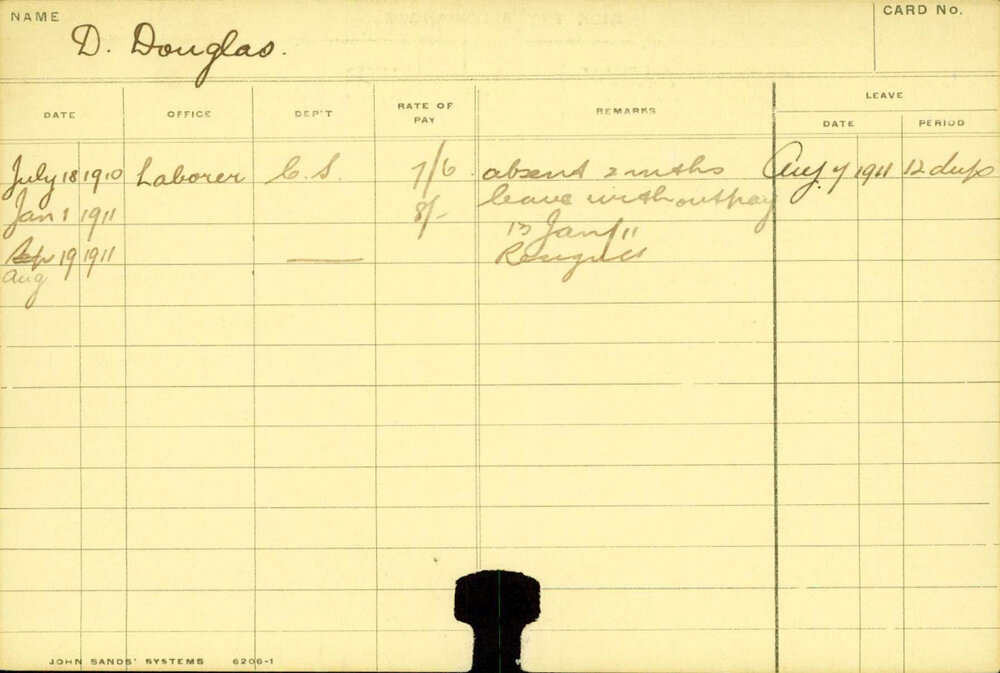 NAME
CARD No.
D. Douglas.
LEAVE
DATE OFFICE DEP'T RATE OF PAY REMARKS DATE PERIOD
July 18 1910 Laborer C.S. 7/6 absent 2 mths Aug. 7 1911 12 days
Jan 1 1911 8/- leave without pay
13 Jan/11
Sep 19 1911 — Resigned
Aug
JOHN SANDS' SYSTEMS 6206-1